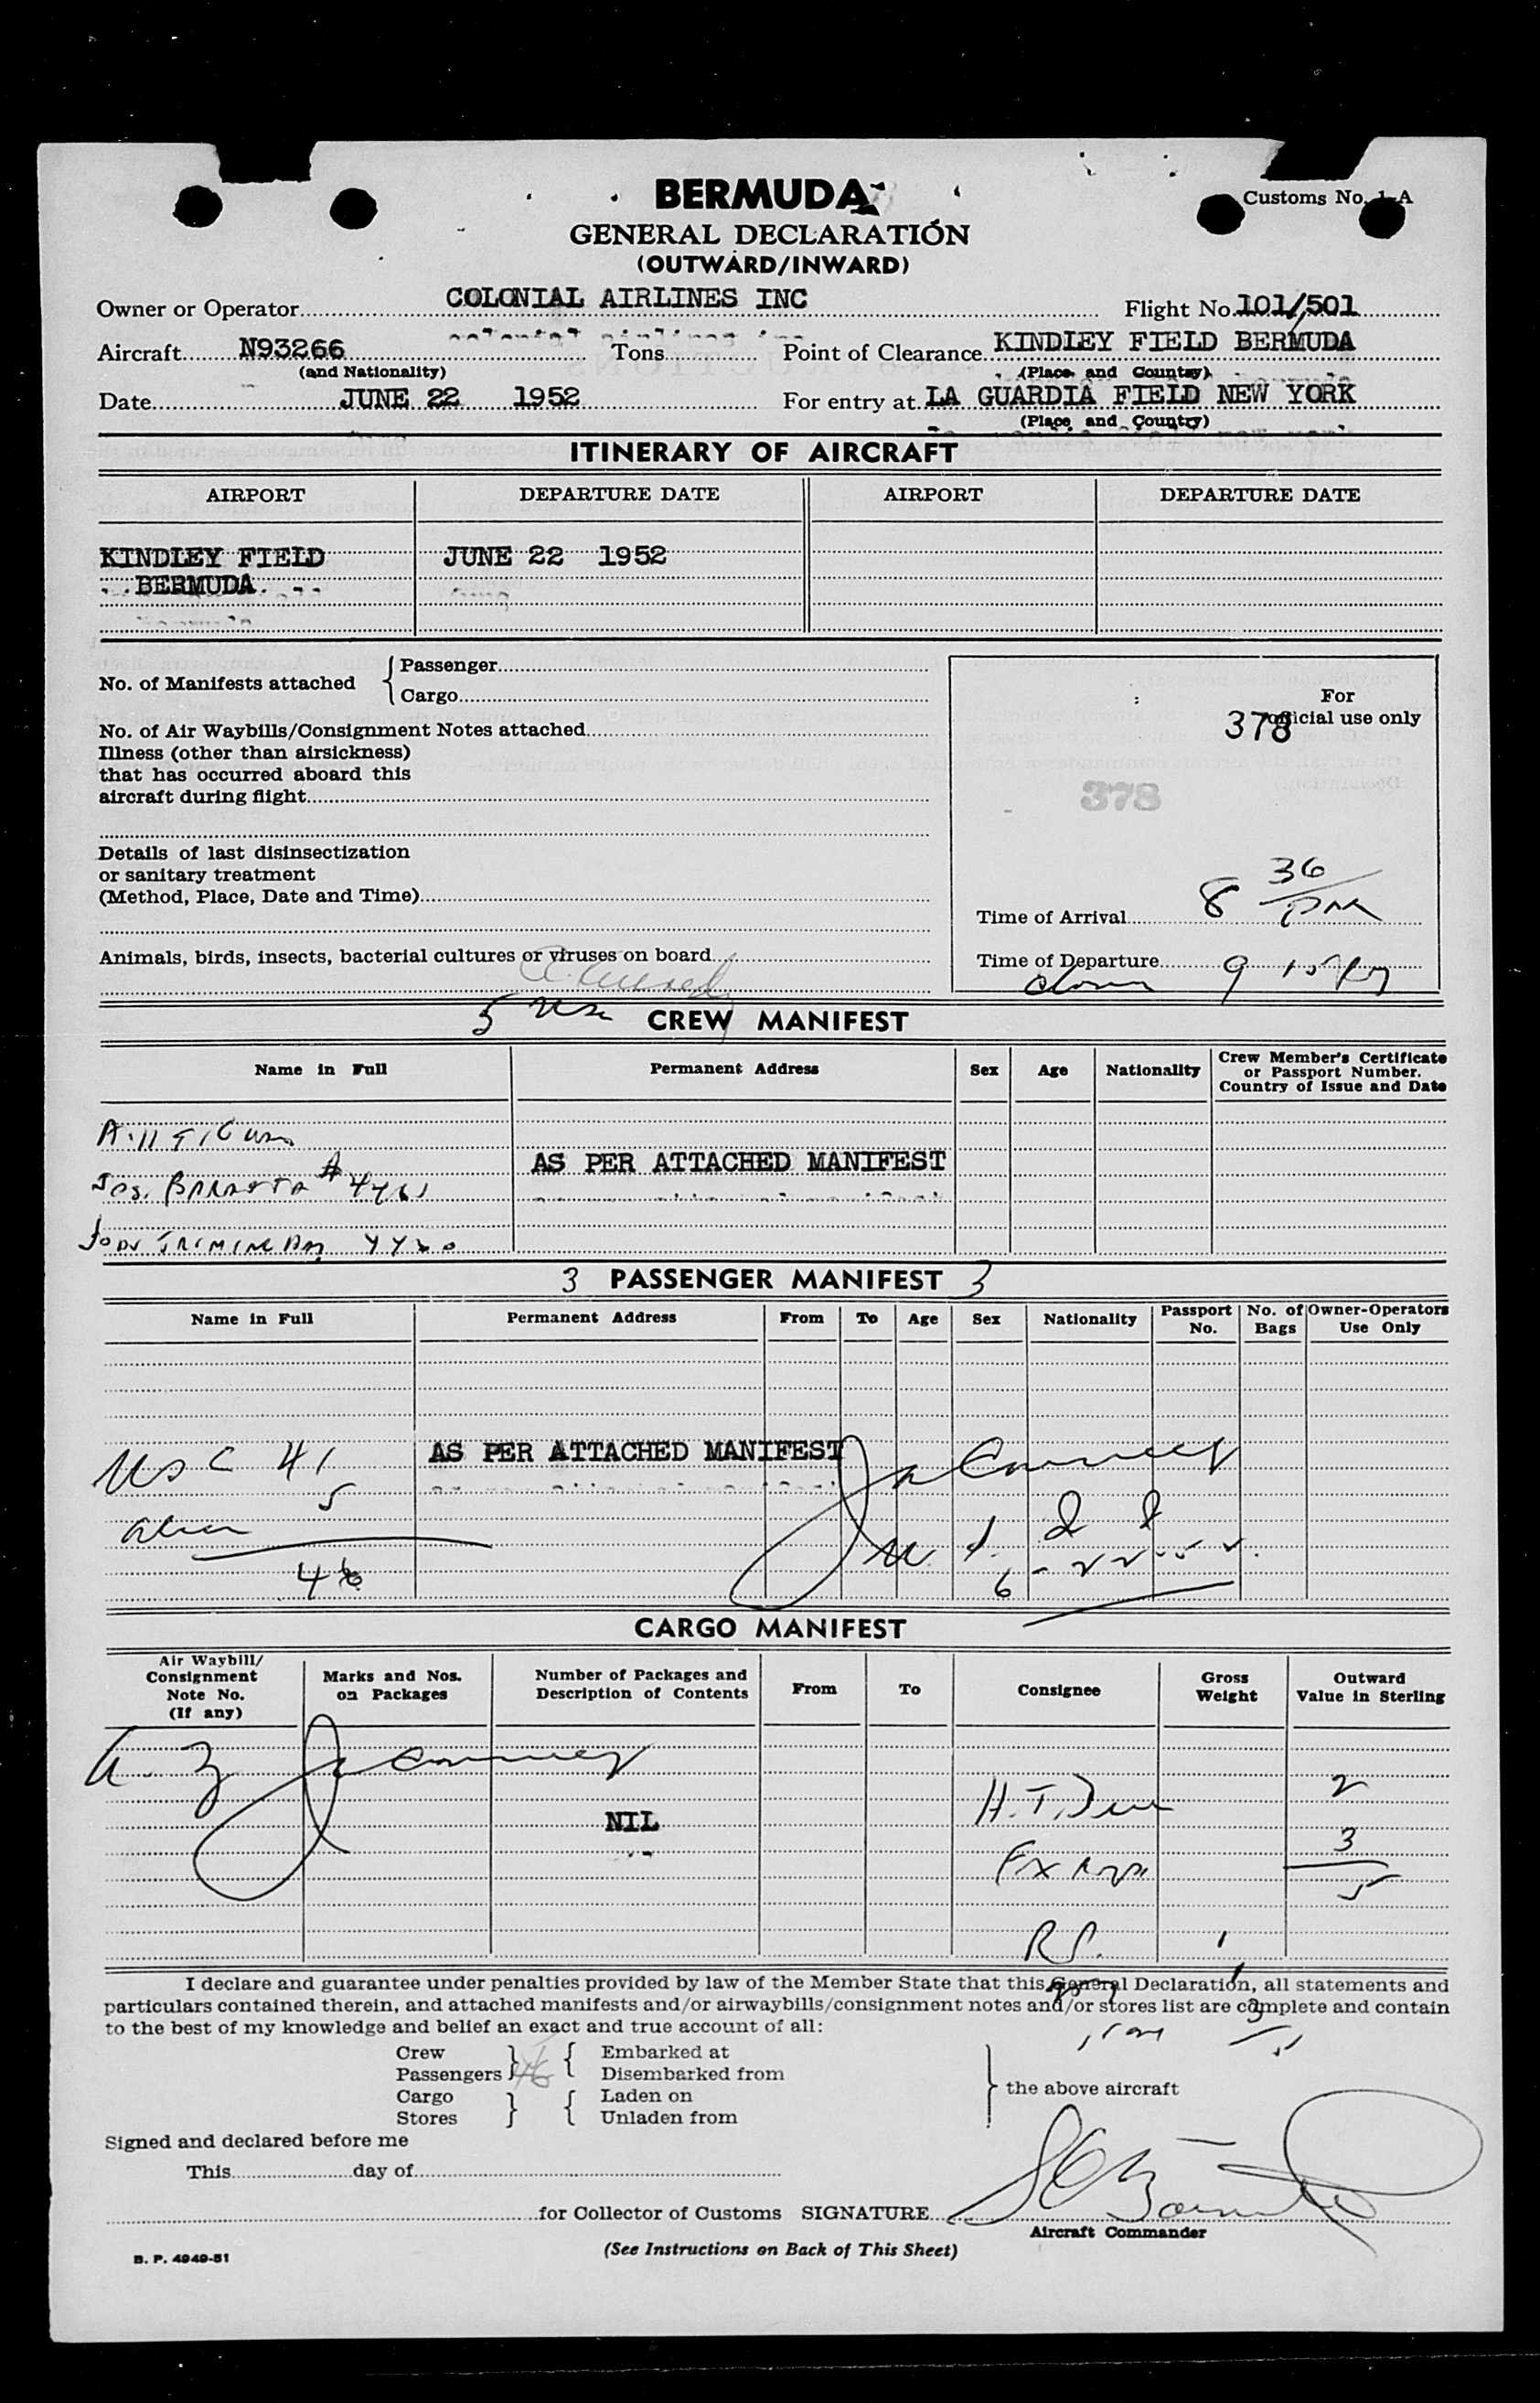 BERMUDA
Customs No. 1-A
GENERAL DECLARATION
(OUTWARD/INWARD)
Owner or Operator COLONIAL AIRLINES INC Flight No. 101/501
Aircraft N93266 Tons Point of Clearance KINDLEY FIELD BERMUDA
(and Nationality) (Place and Country)
Date JUNE 22 1952 For entry at LA GUARDIA FIELD NEW YORK
(Place and Country)
ITINERARY OF AIRCRAFT
AIRPORT DEPARTURE DATE AIRPORT DEPARTURE DATE
KINDLEY FIELD JUNE 22 1952
BERMUDA
No. of Manifests attached { Passenger
Cargo
For
official use only
378
No. of Air Waybills/Consignment Notes attached
Illness (other than airsickness)
that has occurred aboard this
aircraft during flight
378
Details of last disinsectization
or sanitary treatment
(Method, Place, Date and Time)
Time of Arrival 8 36 PM
Animals, birds, insects, bacterial cultures or viruses on board
Time of Departure 9 15
5 CREW MANIFEST
Name in Full Permanent Address Sex Age Nationality Crew Member's Certificate
or Passport Number.
Country of Issue and Date
AS PER ATTACHED MANIFEST
Jos. BARATTA #4461
3 PASSENGER MANIFEST 3
Name in Full Permanent Address From To Age Sex Nationality Passport No. No. of Bags Owner-Operators Use Only
USC 41 AS PER ATTACHED MANIFEST
alien 5
46
6-22-52
CARGO MANIFEST
Air Waybill/
Consignment
Note No.
(If any)
Marks and Nos.
on Packages
Number of Packages and
Description of Contents
From To Consignee Gross
Weight
Outward
Value in Sterling
2
H.T.
NIL
3
5
I declare and guarantee under penalties provided by law of the Member State that this General Declaration, all statements and
particulars contained therein, and attached manifests and/or airwaybills/consignment notes and/or stores list are complete and contain
to the best of my knowledge and belief an exact and true account of all:
Crew } { Embarked at
Passengers 46 Disembarked from
Cargo } { Laden on
Stores Unladen from
} the above aircraft
Signed and declared before me
This day of
for Collector of Customs SIGNATURE
Aircraft Commander
B. P. 4949-51
(See Instructions on Back of This Sheet)